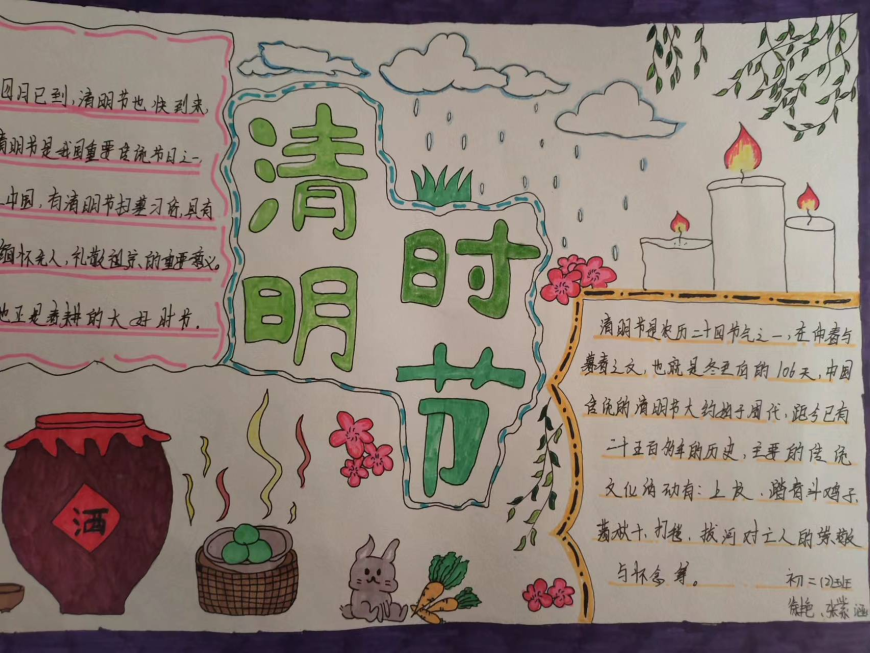 四月已到,清明节也快到来,
清明节是我国重要传统节日之一,
中国,有清明节扫墓习俗,具有
缅怀先人,礼敬祖宗的重要意义。
也正是春耕的大好时节.
清明
时节
酒
清明节是农历二十四节气之一,在仲春与
暮春之交,也就是冬至后的106天,中国
传统的清明节大约始于周代,距今已有
二千五百多年的历史,主要的传统
文化活动有:上坟、踏青斗鸡子,
荡秋千,打毯,拔河对亡人的
与怀念等。
初二(2)班